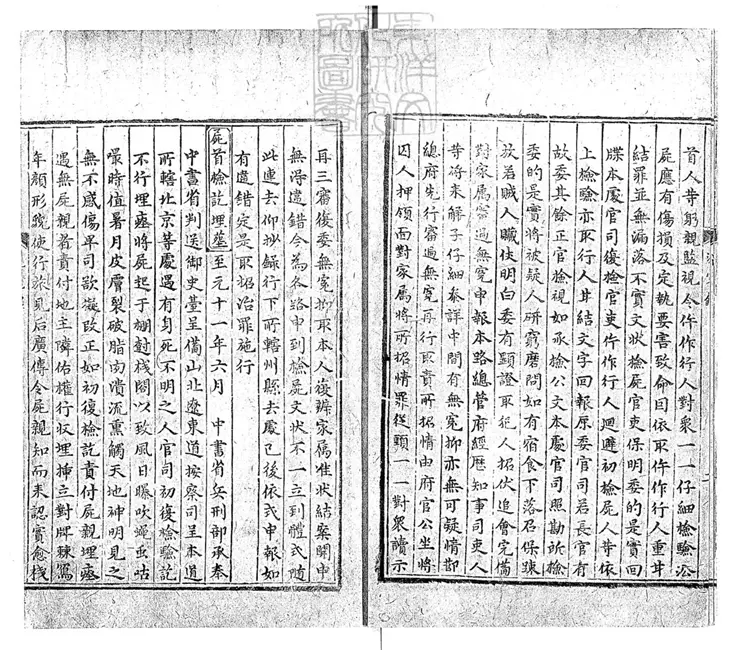 首人等躬親監視令仵作行人對衆一一仔細檢驗沿
屍應有傷損及定執要害致命因依取仵作行人重甘
結罪並無漏落不實文狀檢屍官吏保明委的是實回
牒本處官司復檢官吏仵作行人迴避初檢屍人等依
上檢驗亦取行人甘結文字回報原委官司若長官有
故委其餘正官檢視如承檢公文本處官司照勘所檢
委的是實將被疑人研窮磨問如有宿食下落召保疎
放若賊人贓仗明白委有顯證取犯人招伏追會完備
對家属審過無寃申報本路總管府經歷知事司吏人
等将来解子仔細叅詳中間有無寃抑亦無可疑情節
總府先行審過無寃再行取責所招情由府官公坐將
囚人押領面對家属將所招情罪從頭一一對衆讀示
再三審復委無寃抑取本人復辨家属准状結案開申
無得違錯今為各路申到檢屍文状不一立到體式隨
此連去仰抄錄行下所轄州縣去處已後依式申報如
有違錯定是取招治罪施行
屍首檢訖埋𦵏 至元十一年六月 中書省兵刑部承奉
中書省判送御史臺呈備山北遼東道按察司呈本道
所轄北京等處遇有身死不明之人官司初復檢驗訖
不行埋瘞將屍起于棚尌栈閣以致風日曝吹蠅虫咕
嘬時值暑月皮膚裂破脂肉潰流熏觸天地神明見之
無不感傷卑司欲擬改正如初復檢訖責付屍親埋瘞
遇無屍親者責付地主隣佑權行収埋挿立封牌踈寫
年顔形貌使行旅見后廣傳令屍親知而来認實愈栈